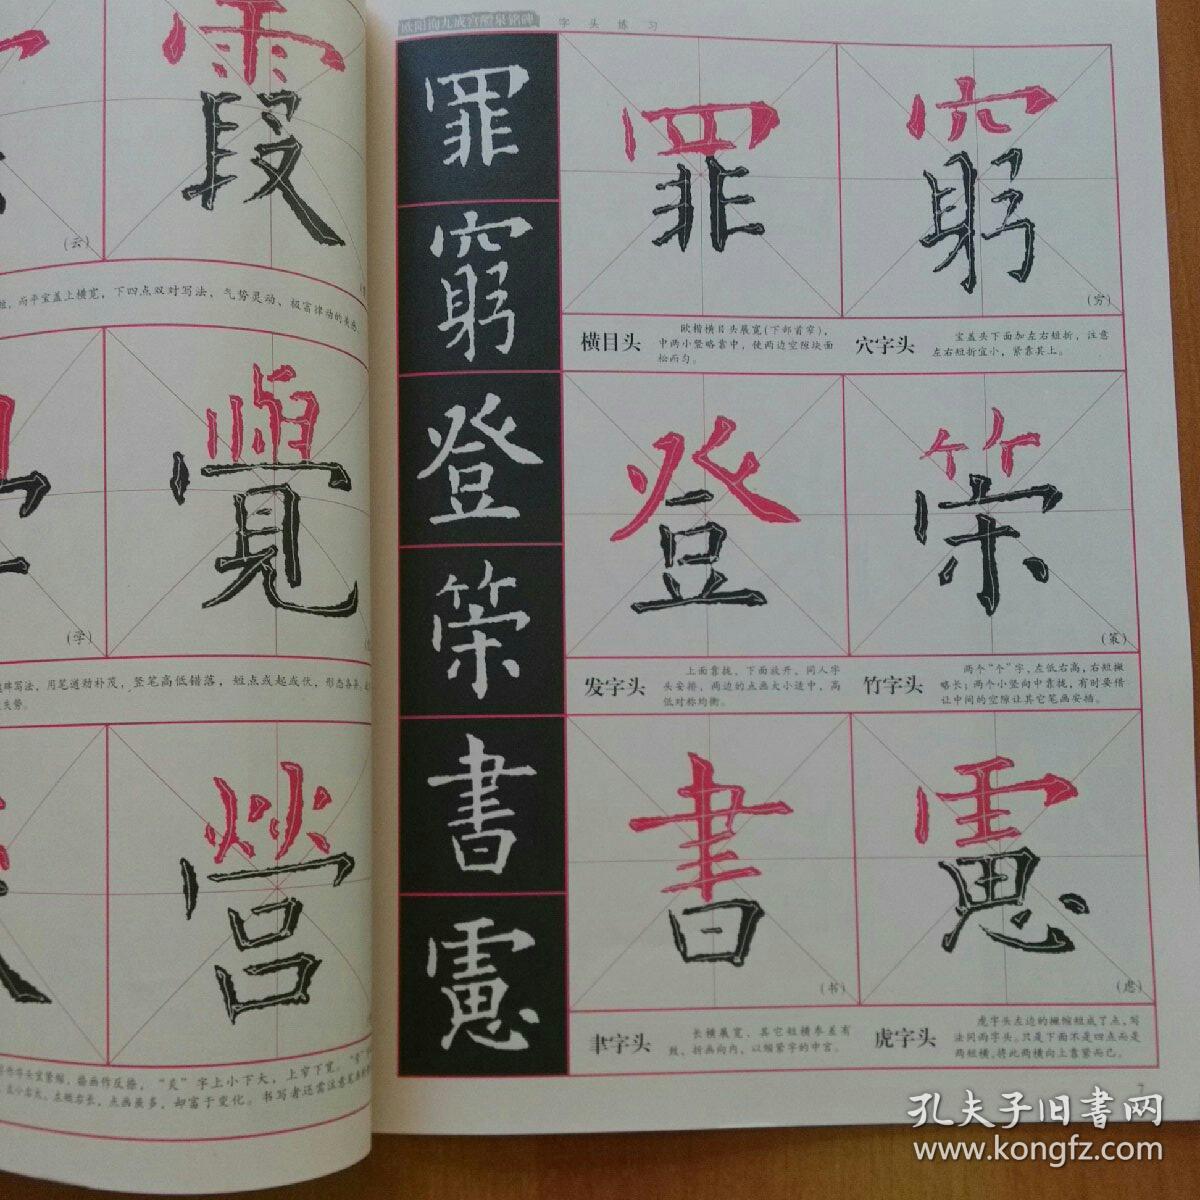 霞
(云)
而平宝盖上横宽，下四点双对写法，气势灵动、极富律动的美感。
覺
(学)
碑写法，用笔遒劲朴茂，竖笔高低错落，短点或起或伏，形态各异。
失势。
營
“炎”字上小下大，上窄下宽。
左小右大。左短右长，点画虽多，却富于变化。书写者还需注意
欧阳询九成宫醴泉铭碑
字头练习
罪
窮
登
策
書
慮
罪
窮
(穷)
横目头
欧楷横目头展宽(下部首窄)，
中两小竖略靠中，使两边空隙块面
松而匀。
穴字头
宝盖头下面加左右短折，注意
左右短折宜小，紧靠其上。
登
策
(策)
发字头
上面靠拢，下面放开，同人字
头安排，两边的点画大小适中，高
低对称均衡。
竹字头
两个“个”字，左低右高，右短撇
略长；两个小竖向中靠拢，有时要借
让中间的空隙让其它笔画安插。
書
(书)
慮
(虑)
聿字头
长横展宽，其它短横参差有
致，折画向内，以缩繁字的中宫。
虎字头
虎字头左边的撇缩短成了点，写
法同雨字头。只是下面不是四点而是
两短横，将此两横向上靠紧而已。
7
孔夫子旧书网
www.kongfz.com